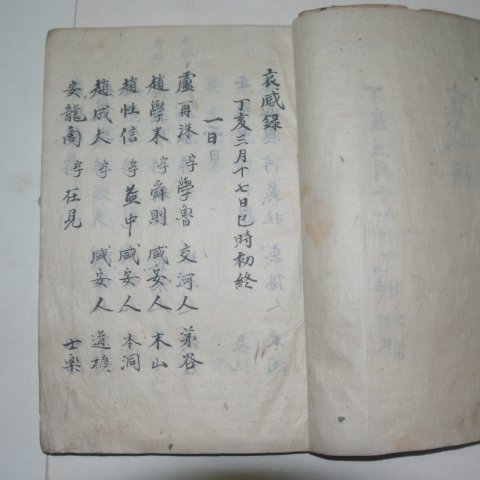 哀感錄
丁亥三月十七日巳時初終
一日日
盧再洙 字學魯 交河人 茅谷
趙學來 字舜則 咸安人 木山
趙性信 字益中 咸安人 本洞
趙成大 字 咸安人 道項
安龍商 字在見 士樂